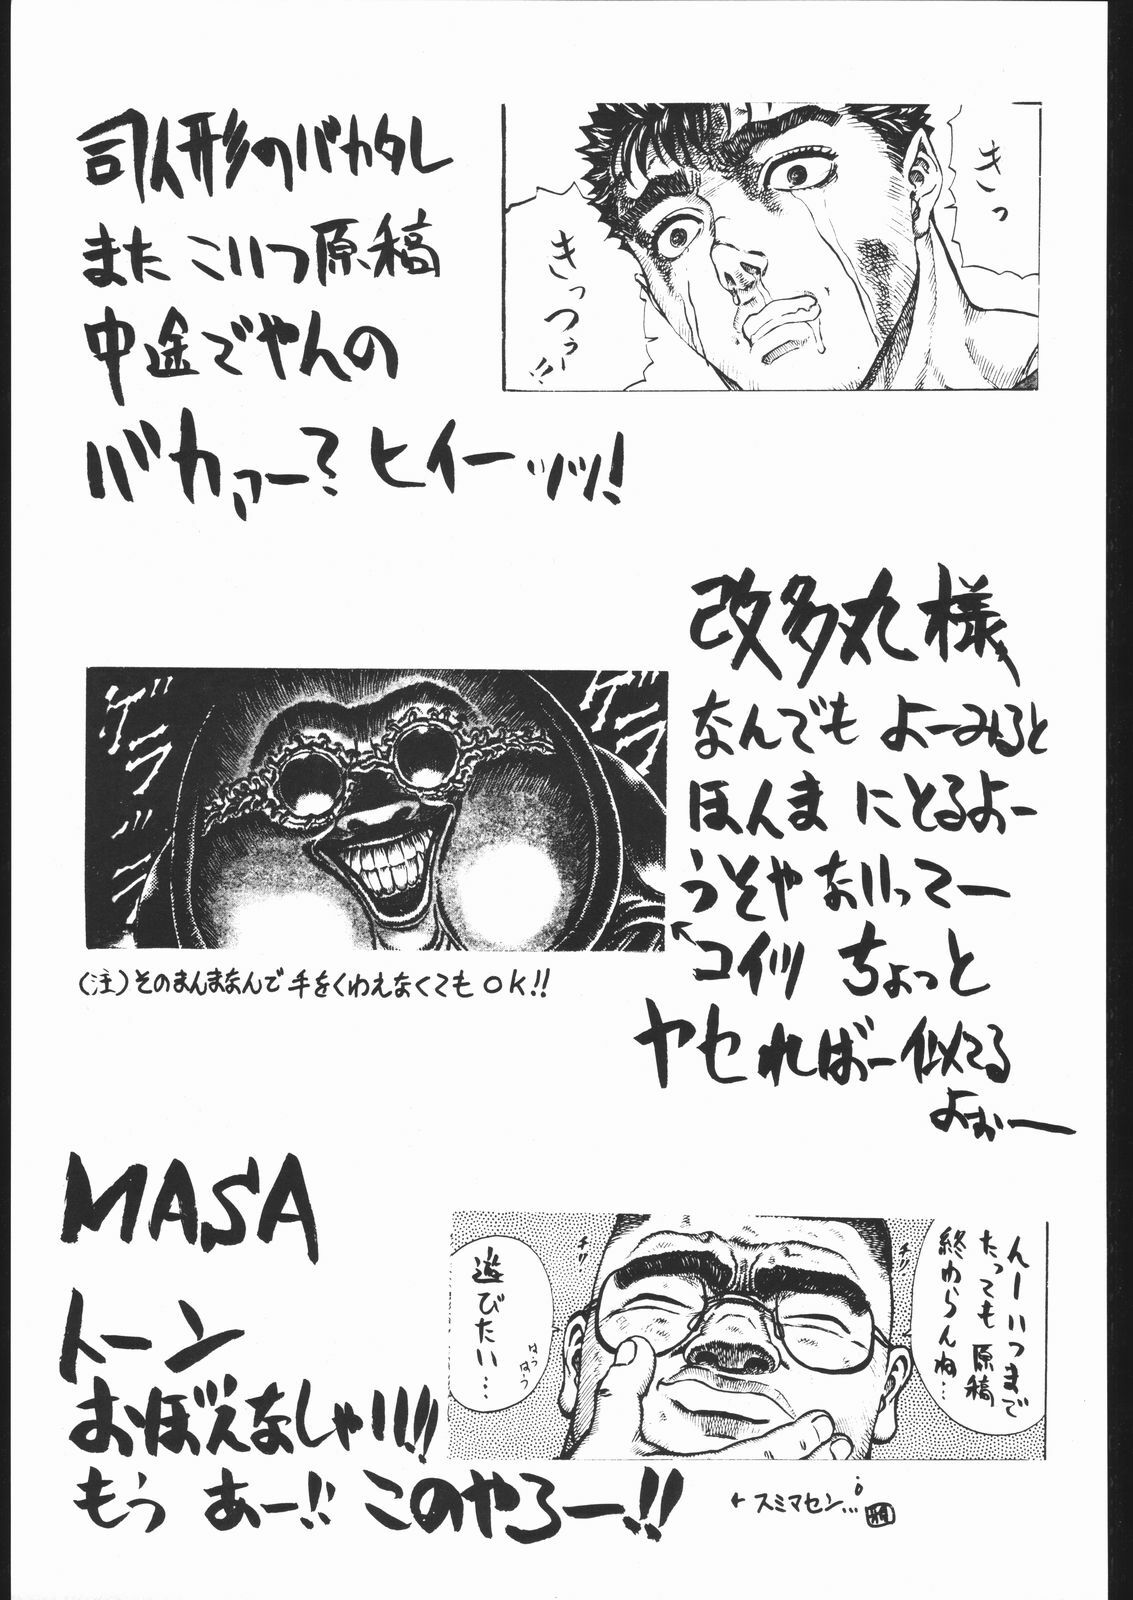 司人形のバカタレ
また こいつ原稿
中途でやんの
バカァー? ヒイーッッ!
きっ
きっつぅー!!
改多丸様
なんでも よーみると
ほんま にとるよー
うそやないってー
←コイツ ちょっと
ヤセればー似てる
よぉー
ゲラゲラ
ゲラゲラ
(注)そのまんまなんで手をくわえなくてもOK!!
MASA
トーン
おぼえなしゃい!!
もう あー!! このやろー!!
んーいつまで
たっても原稿
終わらんね…
遊びたい…
はぅはぅ
←スミマセン…